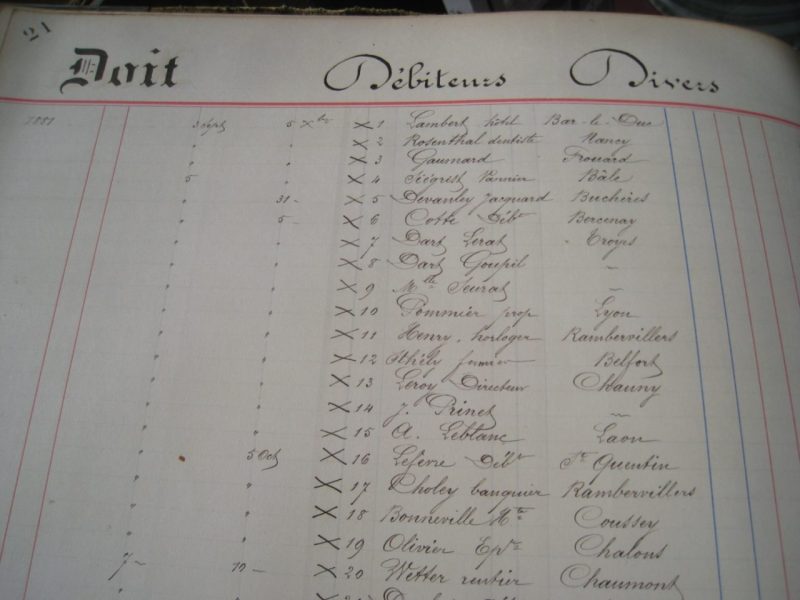 21
Doit Débiteurs Divers
1881 3 Sept 5 Xbre X 1 Lambert hôtel Bar-le-Duc
" " X 2 Rosenthal dentiste Nancy
" " X 3 Gaumard Frouard
5 " X 4 Bâle
" 31 - X 5 Devanley Jacquard Buchères
" 5 - X 6 Cotte Débt Bercenay
" " X 7 Dart Lerat Troyes
" " X 8 Dart Goupil "
" " X 9 Mlle Seurat
" " X 10 Pommier prop Lyon
" " X 11 Henry, horloger Rambervillers
" " X 12 Belfort
" " X 13 Leroy Directeur Chauny
" " X 14 J. Prinet "
" " X 15 A. Leblanc Laon
" 5 Oct X 16 Lefèvre Débt St Quentin
" " X 17 Choley banquier Rambervillers
" " X 18 Bonneville Coussey
" " X 19 Olivier Chalons
7 - 10 - X 20 Wetter rentier Chaumont